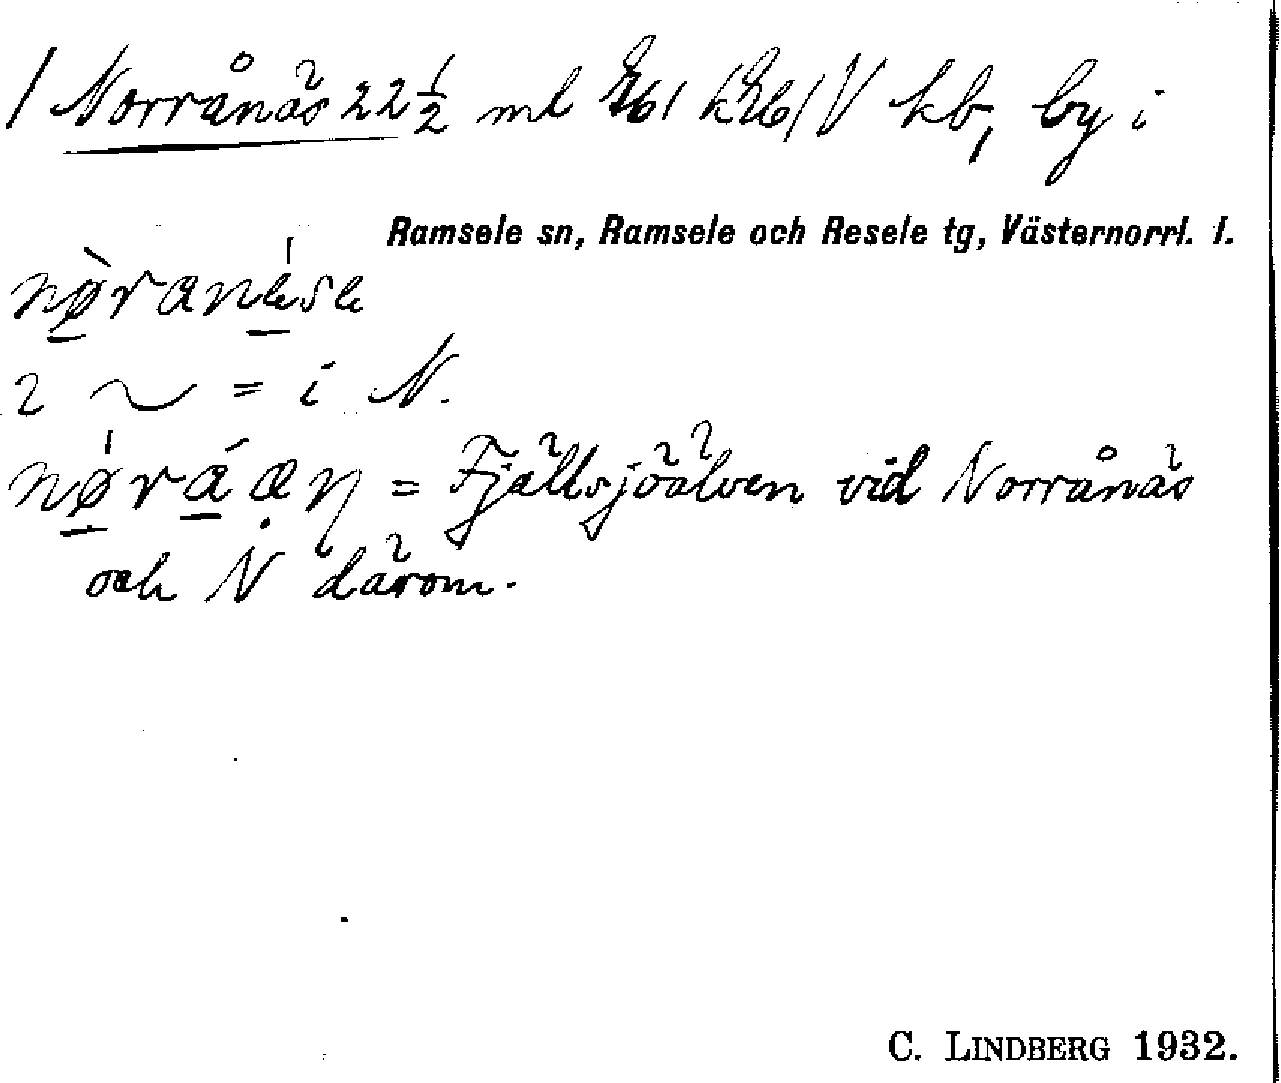 1 Norrånäs 22½ ml kb, by i
Ramsele sn, Ramsele och Resele tg, Västernorrl. l.
2 ~ = i N.
= Fjällsjöälven vid Norrånäs
och N därom.
C. LINDBERG 1932.